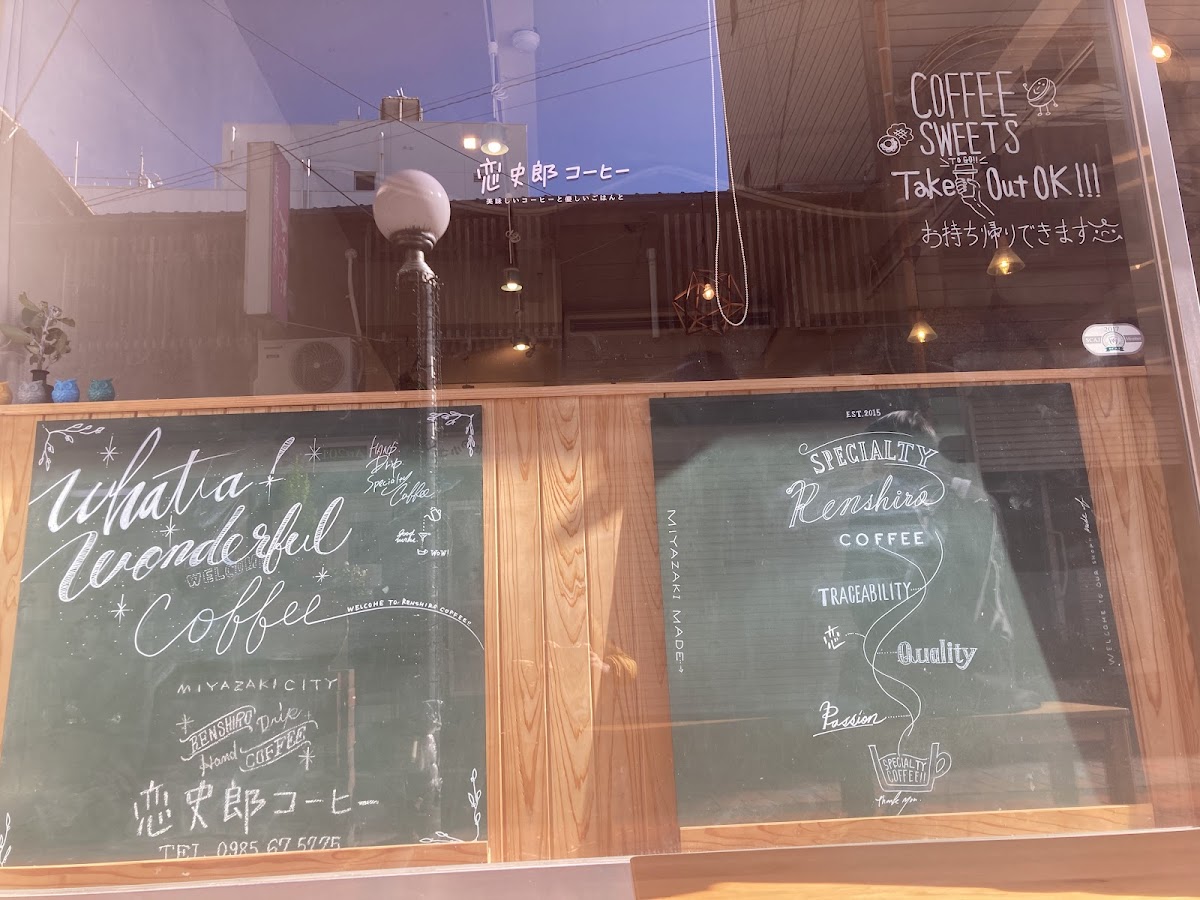 恋史郎コーヒー
美味しいコーヒーと優しいごはんと
COFFEE
SWEETS
TO GO!!
Take Out OK!!!
お持ち帰りできます
What a!
Wonderful
WELCOME
Coffee
Hand
Drip
Specialty
Coffee
WOW!
WELCOME TO RENSHIRO COFFEE!!
MIYAZAKI CITY
RENSHIRO Drip
Hand COFFEE
恋史郎コーヒー
TEL 0985 67 5775
EST.2015
SPECIALTY
Renshiro
COFFEE
TRACEABILITY
恋
Quality
Passion
SPECIALTY
COFFEE!!
Thank you
MIYAZAKI MADE
WELCOME TO OUR SHOP